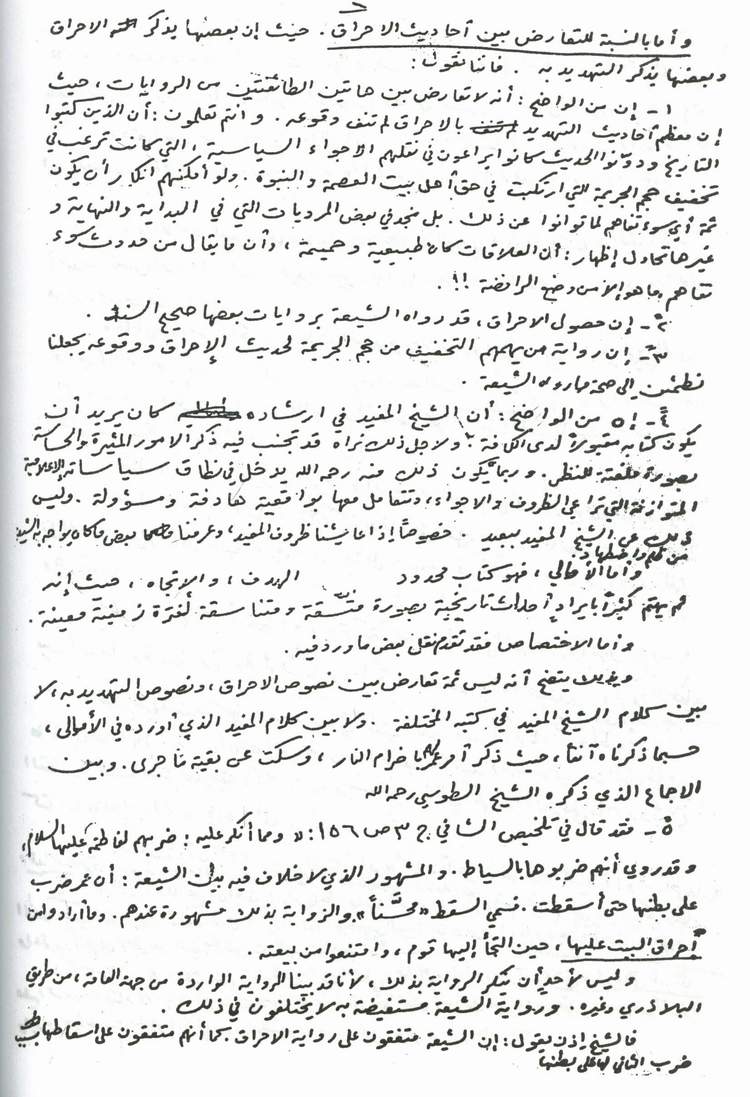 ٦
وأما بالنسبة للتعارض بين أحاديث الاحراق. حيث إن بعضها يذكر الاحراق
وبعضها يذكر التهديد به. فاننا نقول:
١ـ إن من الواضح: أنه لا تعارض بين هاتين الطائفتين من الروايات، حيث
إن معظم أحاديث التهديد بالاحراق لم تنف وقوعه. وانتم تعلمون: أن الذين كتبوا
التاريخ ودوّنوا الحديث كانوا يراعون في نقلهم الاجواء السياسية، التي كانت ترغب في
تخفيف حجم الجريمة التي ارتكبت في حق أهل بيت العصمة والنبوة. ولو أمكنهم انكار أن يكون
ثمة أي سوء تفاهم لما توانوا عن ذلك. بل نجد في بعض المرويات التي في البداية والنهاية و
غيرها تحاول إظهار: أن العلاقات كانت طبيعية وحميمة، وأن ما يقال من حدوث سوء
تفاهم، ما هو إلا من وضع الرافضة !!.
٢ـ إن حصول الاحراق، قد رواه الشيعة بروايات بعضها صحيح السند.
٣ـ إن رواية من يهمهم التخفيف من حجم الجريمة لحديث الإحراق ووقوعه يجعلنا
نطمئن إلى صحة ما رواه الشيعة.
٤ـ إن من الواضح: أن الشيخ المفيد في ارشاده كان يريد أن
يكون كتابه مقبولاً لدى الكافة، ولاجل ذلك نراه قد تجنب فيه ذكر الامور المثيرة والحساسة
بصورة ملفتة للنظر. وربما يكون ذلك منه رحمه الله يدخل في نطاق سياساته الإعلامية
المتوازنة التي تراعي الظروف والاجواء، وتتعامل معها بواقعية هادفة ومسؤولة. وليس
ذلك عن الشيخ المفيد ببعيد. خصوصاً إذا عايشنا ظروف المفيد، وعرفنا بعض ما كان يواجه به الشيعة
من ظلم واضطهاد.
وأما الأمالي، فهو كتاب محدود الهدف، والاتجاه، حيث إنه
لم يهتم كثيراً بايراد أحداث تاريخية بصورة متّسقة ومتناسقة لفترة زمنية معينة.
وأما الاختصاص فقد تقدم نقل بعض ما ورد فيه.
وبذلك يتضح أنه ليس ثمة تعارض بين نصوص الاحراق، ونصوص التهديد به، لا
بين كلام الشيخ المفيد في كتبه المختلفة. ولا بين كلام المفيد الذي أورده في الأمالي،
حسبما ذكرناه آنفاً، حيث ذكر أمر عمر باضرام النار، وسكت عن بقية ما جرى. وبين
الاجماع الذي ذكره الشيخ الطوسي رحمه الله
٥ـ فقد قال في تلخيص الشافي ج ٣ ص ١٥٦: «ومما أنكر عليه: ضربهم لفاطمة عليها السلام،
وقد روي أنهم ضربوها بالسياط. والمشهور الذي لا خلاف فيه بين الشيعة: أن عمر ضرب
على بطنها حتى أسقطت. فسمي السقط «محسّناً» والرواية بذلك مشهورة عندهم. وما أرادوا من
إحراق البيت عليها، حين التجأ إليها قوم، وامتنعوا من بيعته.
وليس لأحد أن ينكر الرواية بذلك، لأنا قد بينا الرواية الواردة من جهة العامة، من طريق
البلاذري وغيره. ورواية الشيعة مستفيضة به لا يختلفون في ذلك.
فالشيخ إذن يقول: إن الشيعة متفقون على رواية الاحراق. كما أنهم متفقون على اسقاطها بسبب
ضرب الثاني لها على بطنها